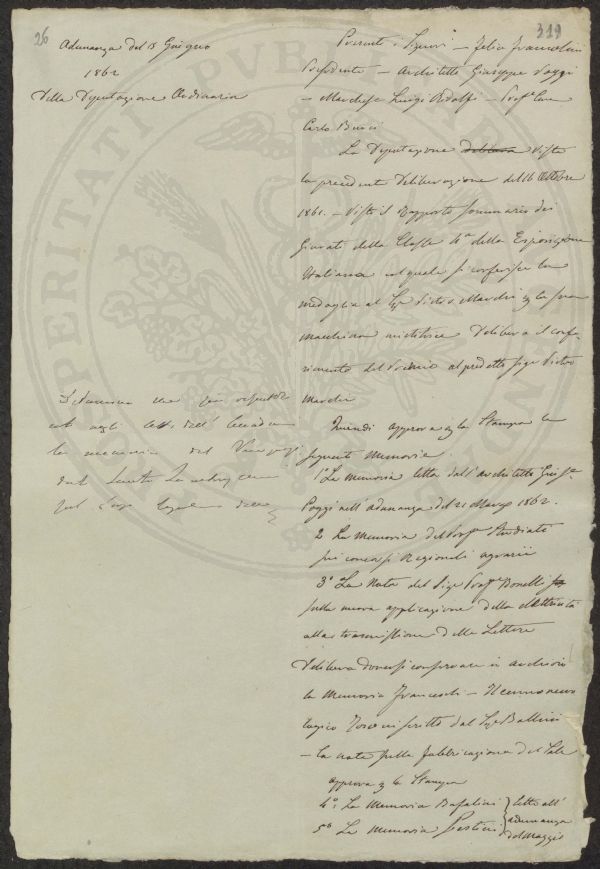 26
319
Adunanza del 15 Giugno
1862
Della Deputazione Ordinaria
Presenti i Signori — Felice Francolini
Presidente — Architetto Giuseppe Poggi
— Marchese Luigi Ridolfi — Prof.e Cav.
Carlo
La Deputazione delibera Visto
la precedente Deliberazione del 16 Ottobre
1861. — Visto il Rapporto sommario dei
Giurati della Classe 4a della Esposizione
Italiana col quale si conferisce la
medaglia al Sig. Pietro per la sua
macchina mietitrice Delibera il confe-
rimento del Premio al predetto Sige Pietro
Quindi approva per la Stampa le
seguenti Memorie
1o La Memoria letta dall'Architetto Gius.e
Poggi nell'adunanza del 21 Marzo 1862.
2 La Memoria del Prof.e Studiati
sui concorsi Regionali agrarii
3o La Nota del Sige Prof.e Bonelli
sulla nuova applicazione della elettricità
alla trasmissione delle Lettere
Delibera doversi conservare in archivio
la Memoria Franceschi — Il cenno necro
logico scritto dal Sige
— la nota sulla fabbricazione del Sale
approva per la Stampa
4o: La Memoria Bufalini
5o La Memoria
letta all'
adunanza
del Maggio
la memoria del